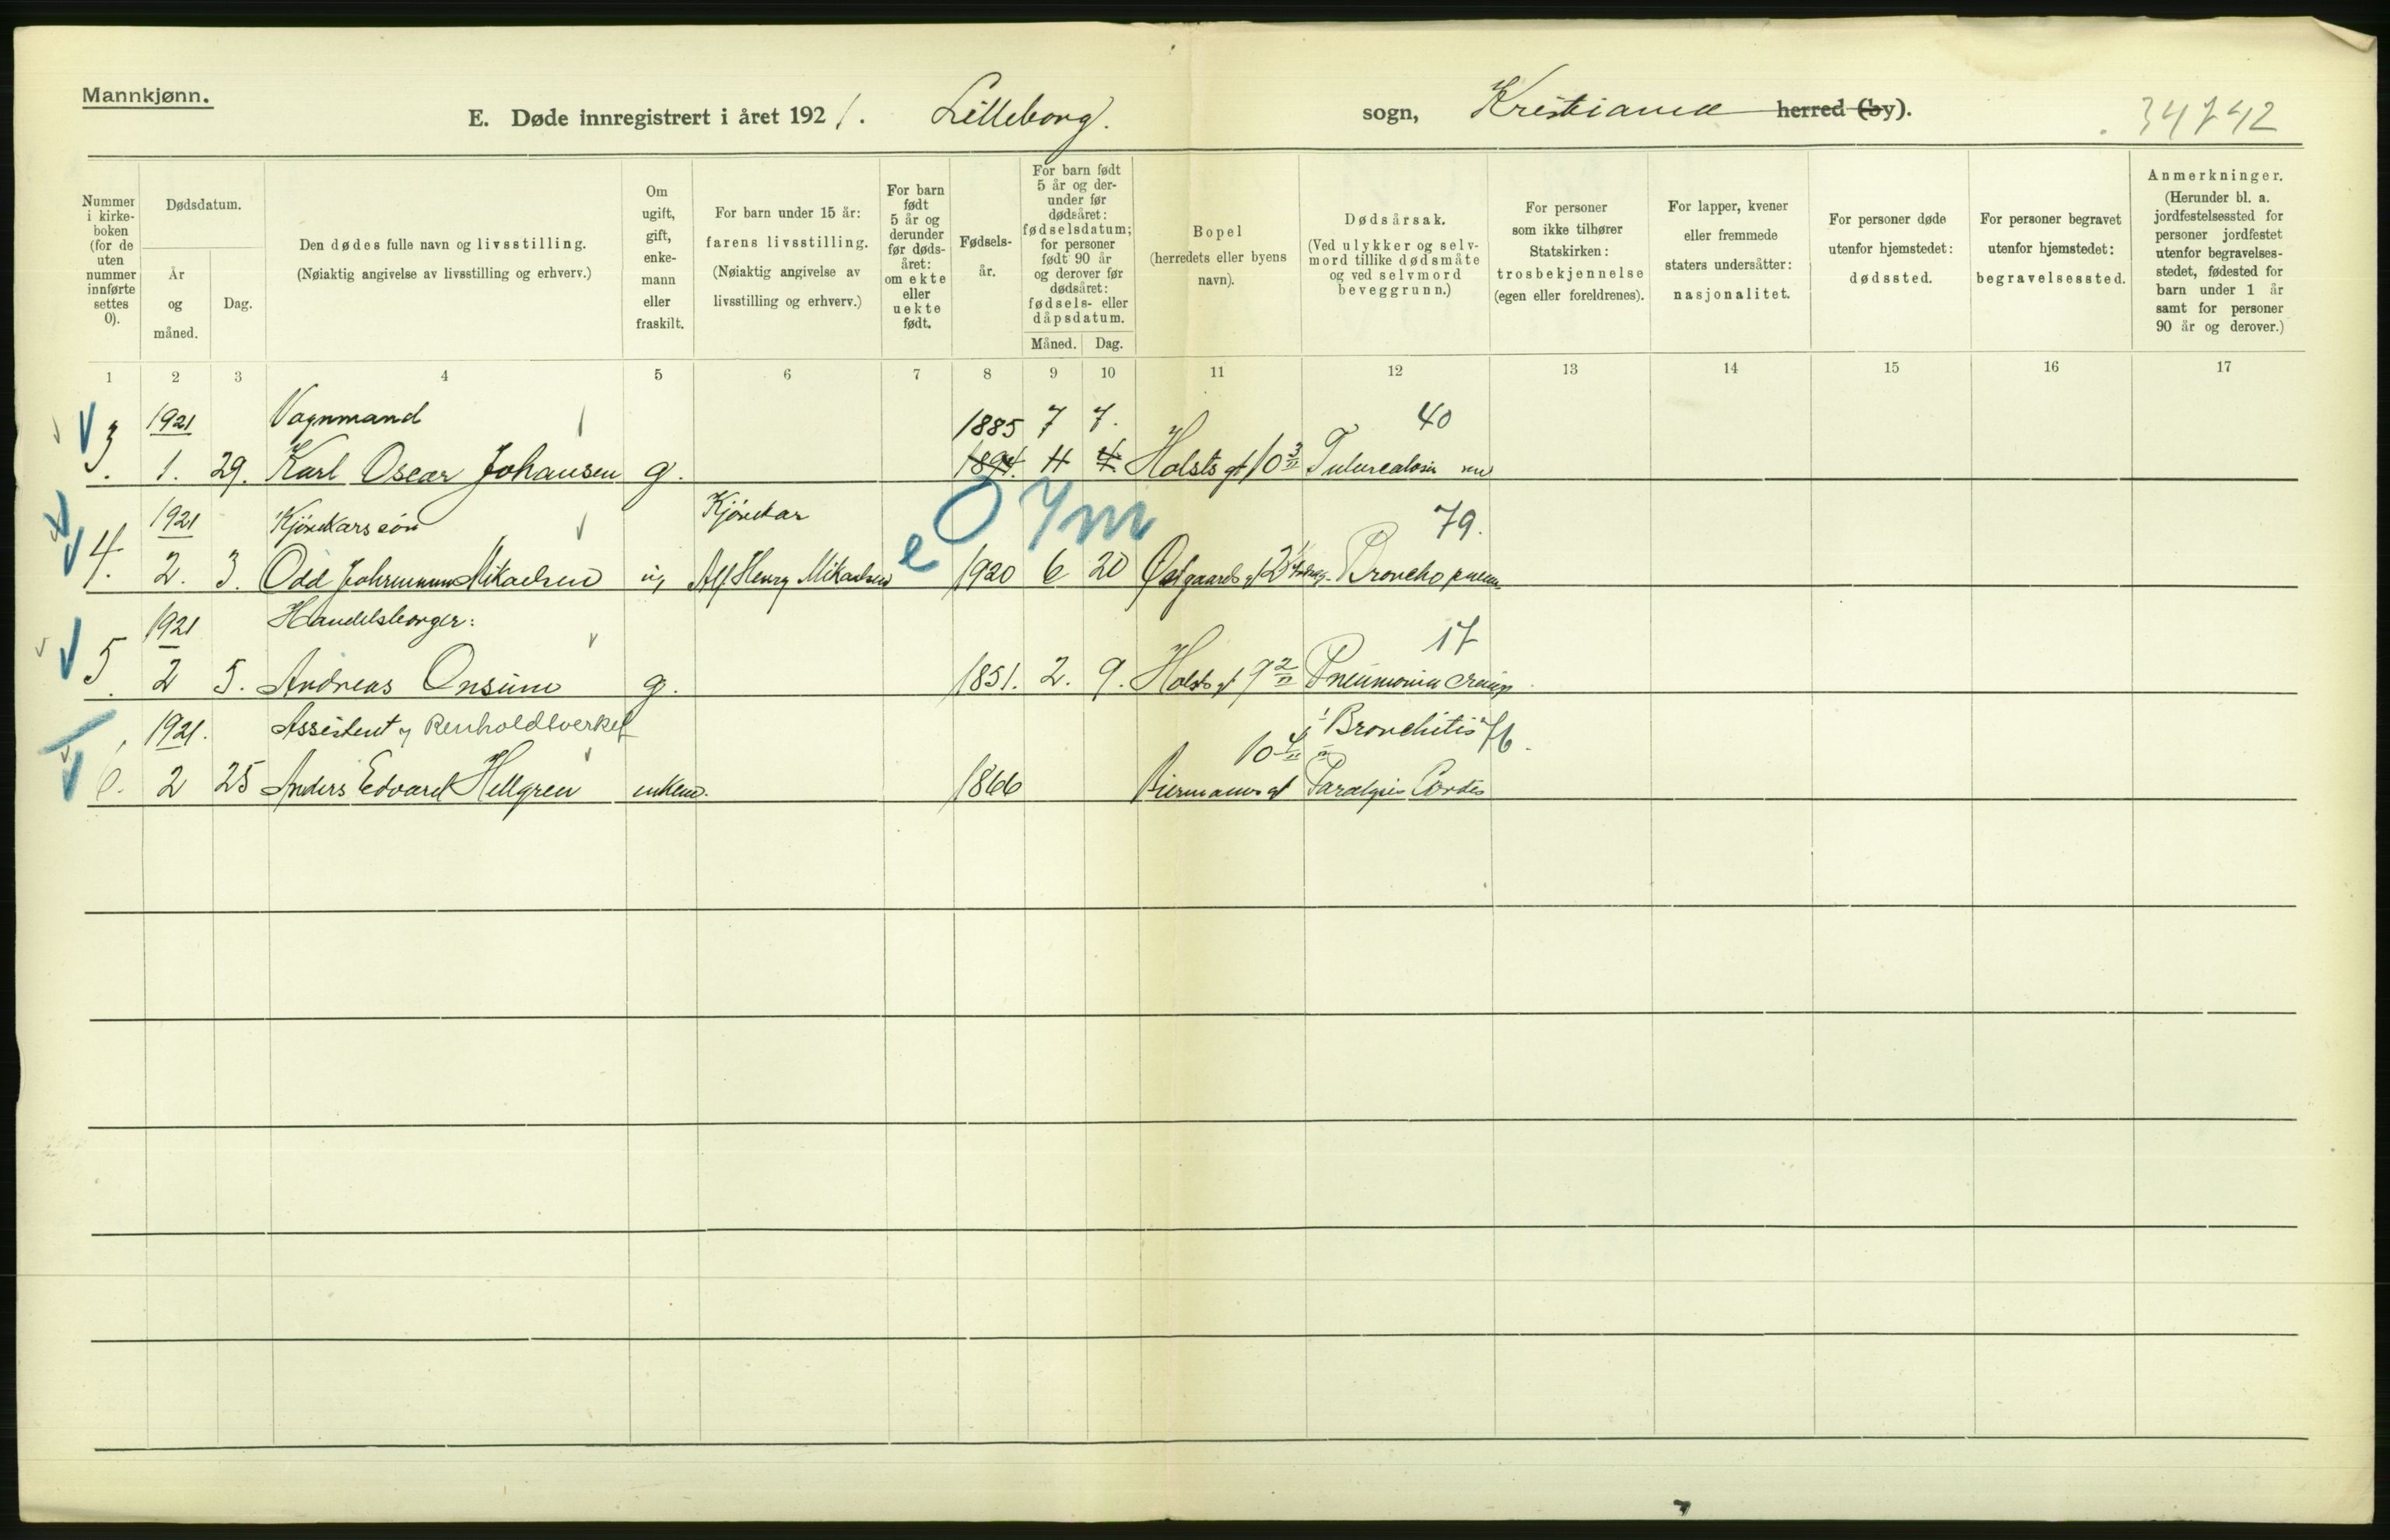 Mannkjønn.
E. Døde innregistrert i året 1921. Lilleborg. sogn, Kristiania herred (by). 34742
Nummer i kirke- boken (for de uten nummer innførte settes 0).
Dødsdatum.
År og måned.
Dag.
Den dødes fulle navn og livsstilling.
(Nøiaktig angivelse av livsstilling og erhverv.)
Om ugift, gift, enke- mann eller fraskilt.
For barn under 15 år:
farens livsstilling.
(Nøiaktig angivelse av livsstilling og erhverv.)
For barn født 5 år og derunder før døds- året: om ekte eller uekte født.
Fødsels- år.
For barn født 5 år og der- under før dødsåret: fødselsdatum; for personer født 90 år og derover før dødsåret: fødsels- eller dåpsdatum.
Måned. Dag.
Bopel
(herredets eller byens navn).
Dødsårsak.
(Ved ulykker og selv- mord tillike dødsmåte og ved selvmord beveggrunn.)
For personer som ikke tilhører Statskirken: trosbekjennelse (egen eller foreldrenes).
For lapper, kvener eller fremmede staters undersåtter: nasjonalitet.
For personer døde utenfor hjemstedet: dødssted.
For personer begravet utenfor hjemstedet: begravelsessted.
Anmerkninger.
(Herunder bl. a. jordfestelsessted for personer jordfestet utenfor begravelses- stedet, fødested for barn under 1 år samt for personer 90 år og derover.)
1 2 3 4 5 6 7 8 9 10 11 12 13 14 15 16 17
1921 Vognmand 1885 7 7. 40
3. 1. 29. Karl Oscar Johansen g. 1894. 11 4. Holsts gt 10 3/II
1921 Kjørekarssøn Kjørekar 0 7m 79.
4. 2. 3. Odd Mikaelsen ug Alf Henry Mikaelsen e 1920 6 20 Broncho pneum.
1921 Handelsborger: 17
5. 2 5. Andreas Onsum g. 1851. 2. 9. Holsts gt 7 2/II Pneumonia croup.
1921. Assistent v Renholdsverket 10 4/II Bronchitis 76.
6. 2 25 Anders Edvard Hellgren enkem. 1866 Biermanns gt Paralysis Cordis